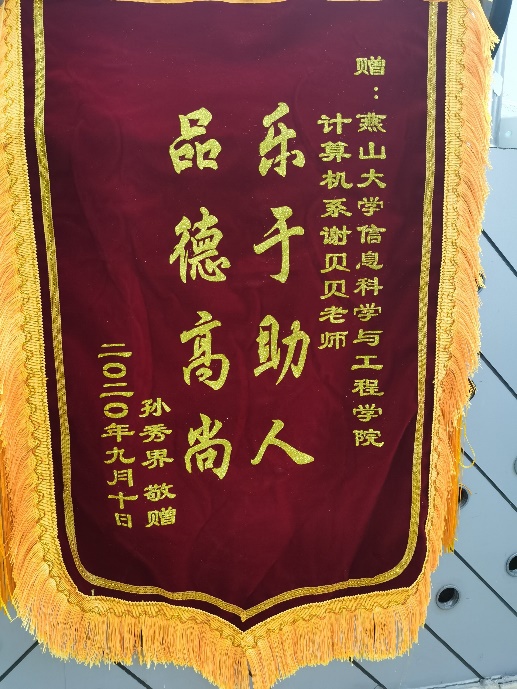 赠：燕山大学信息科学与工程学院
计算机系谢贝贝老师
乐于助人
品德高尚
孙秀界 敬赠
二〇二〇年九月十日